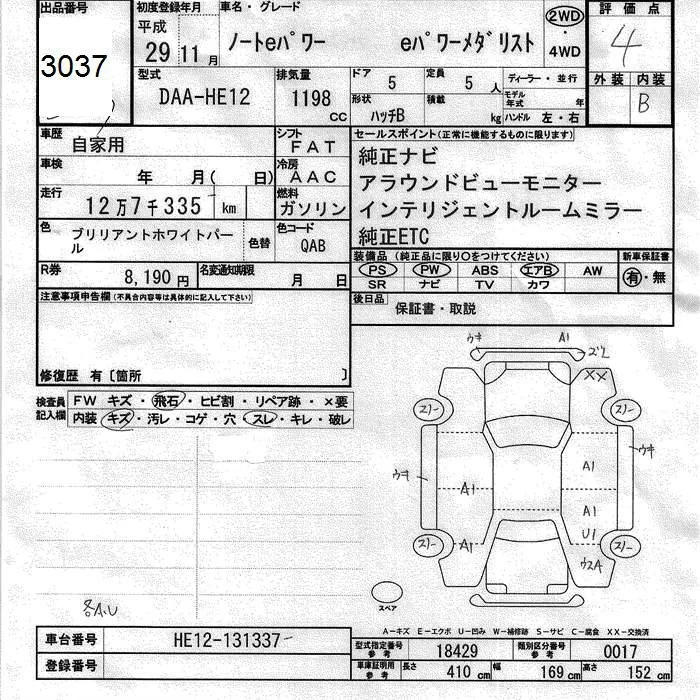 出品番号
3037
初度登録年月
平成
29 11 月
車名・グレード
ノートeパワー eパワーメダリスト
2WD
・
4WD
評価点
4
外装 内装
B
型式
DAA-HE12
排気量
1198
CC
ドア
5
定員
5 人
形状
ハッチB
積載
kg
ディーラー・並行
モデル年式 年
ハンドル 左・右
車歴
自家用
シフト
FAT
車検
年 月( 日)
冷房
AAC
走行
12万7千335 km
燃料
ガソリン
色
ブリリアントホワイトパール
色替
色コード
QAB
R券
8,190 円
名変通知期限
月 日
セールスポイント(正常に機能するものに限ります)
純正ナビ
アラウンドビューモニター
インテリジェントルームミラー
純正ETC
装備品 (純正品に限り〇をつけてください)
新車保証書
PS PW ABS エアB AW
SR ナビ TV カワ
有・無
後日品
保証書・取説
注意事項申告欄(不具合内容等は具体的に記入して下さい)
修復歴 有〔箇所 〕
検査員記入欄
FW キズ・飛石・ヒビ割・リペア跡・×要
内装・キズ・汚レ・コゲ・穴・スレ・キレ・破レ
ウキ
A1
ズレ
XX
スリー
スリー
ウキ
A1
A1
ウキ
A1
U1
スリー
A1
スリー
ウスA
スペア
各A.U
A-キズ E-エクボ U-凹み W-補修跡 S-サビ C-腐食 XX-交換済
車台番号
HE12-131337
登録番号
型式指定番号
参考
18429
類別区分番号
参考
0017
車庫証明用
参考
長さ
410 cm
幅
169 cm
高さ
152 cm